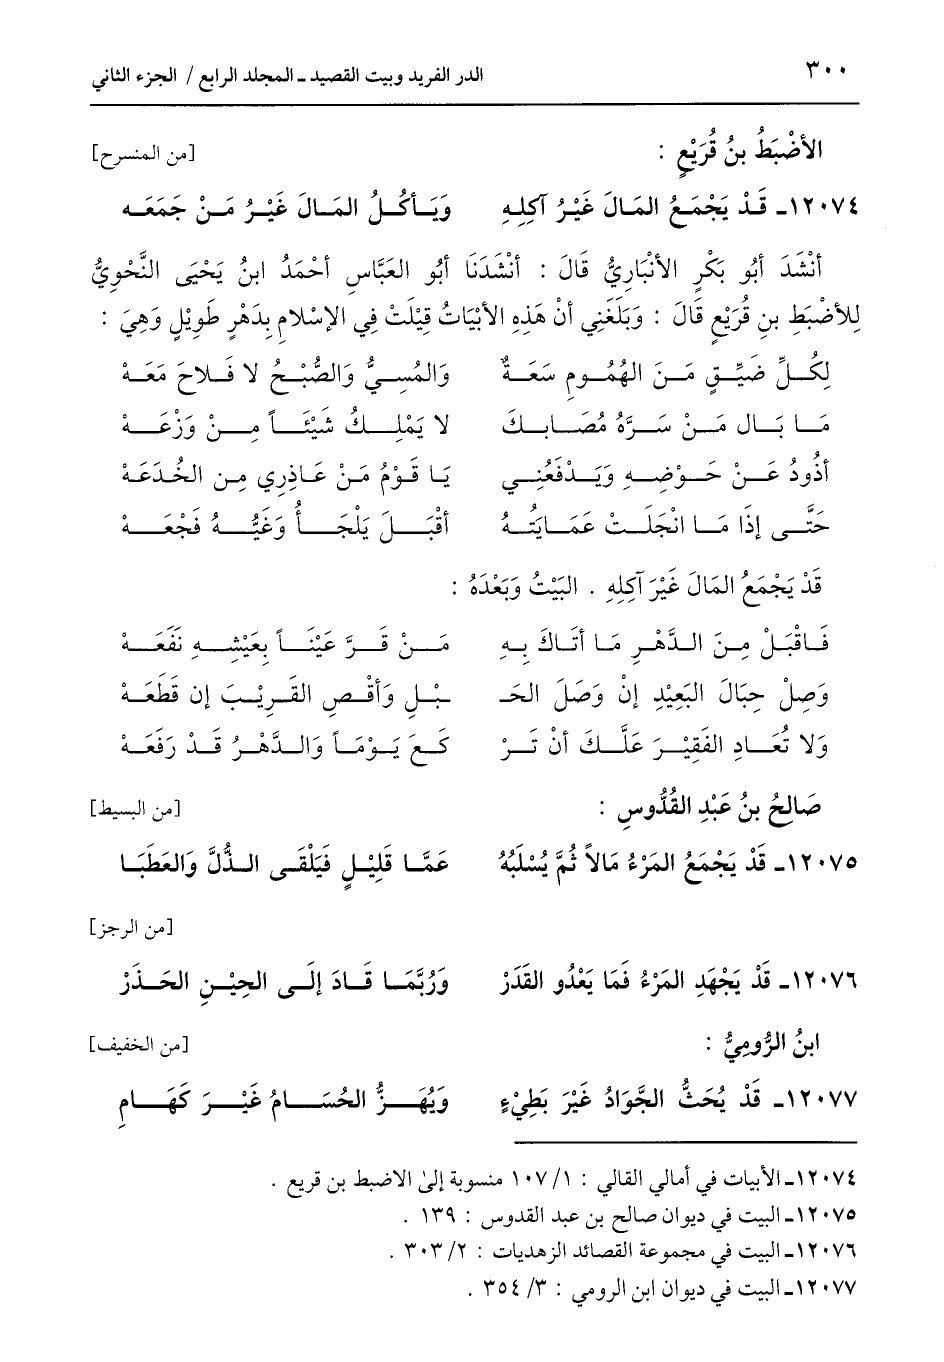 ٣٠٠ الدر الفريد وبيت القصيد ـ المجلد الرابع / الجزء الثاني
الأَضْبَطُ بنُ قُرَيْعٍ : [من المنسرح]
١٢٠٧٤ـ قَدْ يَجْمَعُ المَالَ غَيْرُ آكِلِهِ وَيَأكُلُ المَالَ غَيْرُ مَنْ جَمَعَه
أَنْشَدَ أَبُو بَكْرٍ الأَنْبَارِيُّ قَالَ : أَنْشَدَنَا أَبُو العَبَّاسِ أَحْمَدُ ابنُ يَحْيَى النَّحْوِيُّ
لِلأَضْبَطِ بنِ قُرَيْعٍ قَالَ : وَبَلَغَنِي أَنْ هَذِهِ الأَبْيَاتُ قِيْلَتْ فِي الإِسْلَامِ بِدَهْرٍ طَوِيْلٍ وَهِيَ :
لِكُلِّ ضَيِّقٍ مَنَ الهُمُومِ سَعَةٌ وَالمُسِيُّ وَالصُّبْحُ لا فَلاحَ مَعَهْ
مَا بَال مَنْ سَرَّهُ مُصَابكَ لا يَمْلِكُ شَيْئاً مِنْ وَزْعَهْ
أَذُودُ عَنْ حَوْضِهِ وَيَدْفَعُنِي يَا قَوْمُ مَنْ عَاذِرِي مِن الخُدَعَهْ
حَتَّى إِذَا مَا انْجَلَتْ عَمَايَتُهُ أَقْبَلَ يَلْحَأُ وَغَيُّهُ فَجْعَهْ
قَدْ يَجْمَعُ المَالَ غَيْرَ آكِلِهِ . البَيْتُ وَبَعْدَهُ :
فَاقبَلْ مِنَ الدَّهْرِ مَا أَتَاكَ بِهِ مَنْ قَرَّ عَيْنَاً بِعَيْشِهِ نَفَعَهْ
وَصِلْ حِبَالَ البَعِيْدِ إِنْ وَصَلَ الحَـ ـبْلِ وَأَقْصِ القَرِيْبَ إِن قَطَعَهْ
وَلا تُعَادِ الفَقِيْرَ عَلَّكَ أَنْ تَرْ كَعَ يَوْمَاً وَالدَّهْرُ قَدْ رَفَعَهْ
صَالِحُ بنُ عَبْدِ القُدُّوسِ : [من البسيط]
١٢٠٧٥ـ قَدْ يَجْمَعُ المَرْءُ مَالاً ثُمَّ يُسْلَبُهُ عَمَّا قَلِيْلٍ فَيَلْقَى الذُّلَّ وَالعَطَبَا
[من الرجز]
١٢٠٧٦ـ قَدْ يَجْهَدِ المَرْءُ فَمَا يَعْدُو القَدَرْ وَرُبَّمَا قَادَ إِلَى الحِيْنِ الحَذَرْ
ابنُ الرُّومِيُّ : [من الخفيف]
١٢٠٧٧ـ قَدْ يُحَثُّ الجَوَادُ غَيْرَ بَطِيْءٍ وَيُهَزُّ الحُسَامُ غَيْرَ كَهَامِ
١٢٠٧٤ـ الأبيات في أمالي القالي : ١/ ١٠٧ منسوبة إلى الاضبط بن قريع .
١٢٠٧٥ـ البيت في ديوان صالح بن عبد القدوس : ١٣٩ .
١٢٠٧٦ـ البيت في مجموعة القصائد الزهديات : ٢/ ٣٠٣ .
١٢٠٧٧ـ البيت في ديوان ابن الرومي : ٣/ ٣٥٤ .